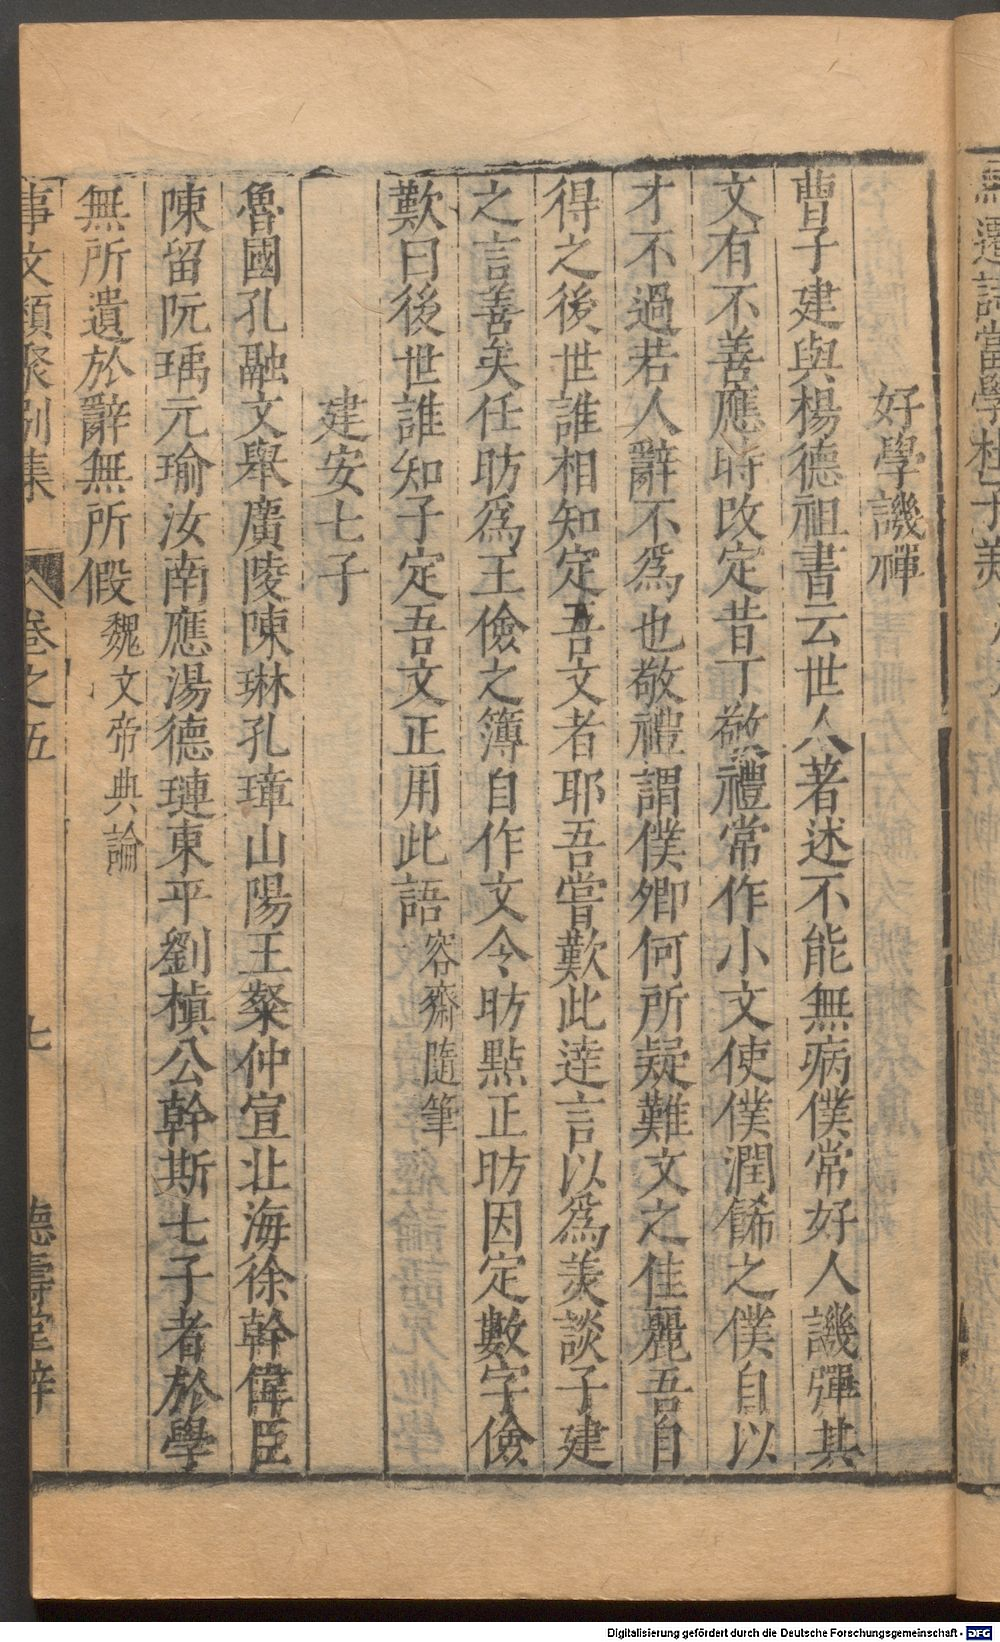 好學譏禪
曹子建與楊德祖書云世人著述不能無病僕常好人譏彈其
文有不善應時改定昔丁敬禮常作小文使僕潤餙之僕自以
才不過若人辭不為也敬禮謂僕卿何所疑難文之佳麗吾自
得之後世誰相知定吾文者耶吾嘗歎此達言以為美談子建
之言善矣任昉為王儉之簿自作文令昉點正昉因定數字儉
歎曰後世誰知子定吾文正用此語容齋隨筆
建安七子
魯國孔融文舉廣陵陳琳孔璋山陽王粲仲宣北海徐幹偉臣
陳留阮瑀元瑜汝南應湯德璉東平劉楨公幹斯七子者於學
無所遺於辭無所假魏文帝典論
事文類聚別集 卷之五 七 德壽堂梓
Digitalisierung gefördert durch die Deutsche Forschungsgemeinschaft - DFG